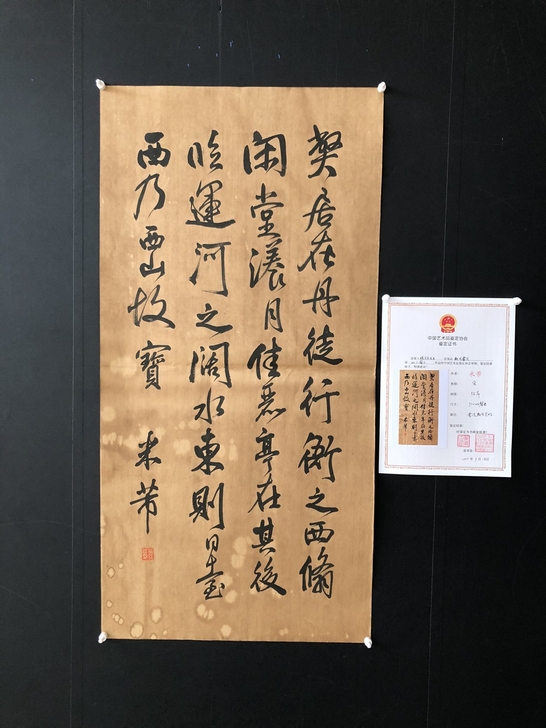 獘居在丹徒行衙之西翛
閑堂漾月佳麗亭在其後
臨運河之闊水東則月臺
西乃西山故寶 米芾
中国艺术品鉴定协会
鉴定证书
米芾